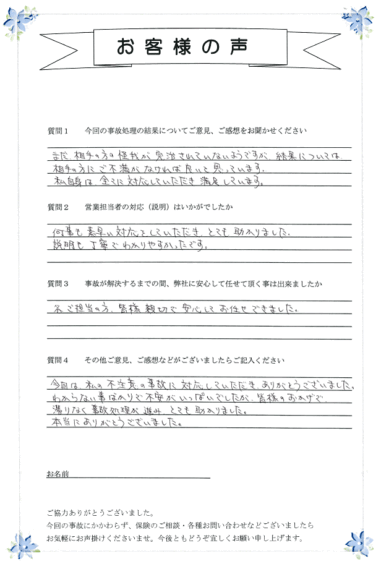 お客様の声
質問1 今回の事故処理の結果についてご意見、ご感想をお聞かせください
まだ 相手の方の怪我が完治されていないようですが 結果については
相手の方に ご不満がなければ良いと思っています。
私自身は 全てに対応していただき 満足しています。
質問2 営業担当者の対応(説明)はいかがでしたか
何事も素早い対応をしていただき とても助かりました。
説明も丁寧でわかりやすかったです。
質問3 事故が解決するまでの間、弊社に安心して任せて頂く事は出来ましたか
ご担当の方、皆様 親切で 安心して お任せできました。
質問4 その他ご意見、ご感想などがございましたらご記入ください
今回は、私の不注意の事故に対応していただき ありがとうございました。
わからない事ばかりで不安がいっぱいでしたが 皆様のおかげで
滞りなく事故処理が進み とても助かりました。
本当にありがとうございました。
お名前
ご協力ありがとうございました。
今回の事故にかかわらず、保険のご相談・各種お問い合わせなどございましたら
お気軽にお声掛けくださいませ。今後ともどうぞ宜しくお願い申し上げます。